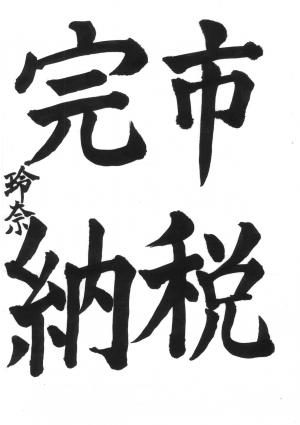 市税
完納
玲奈